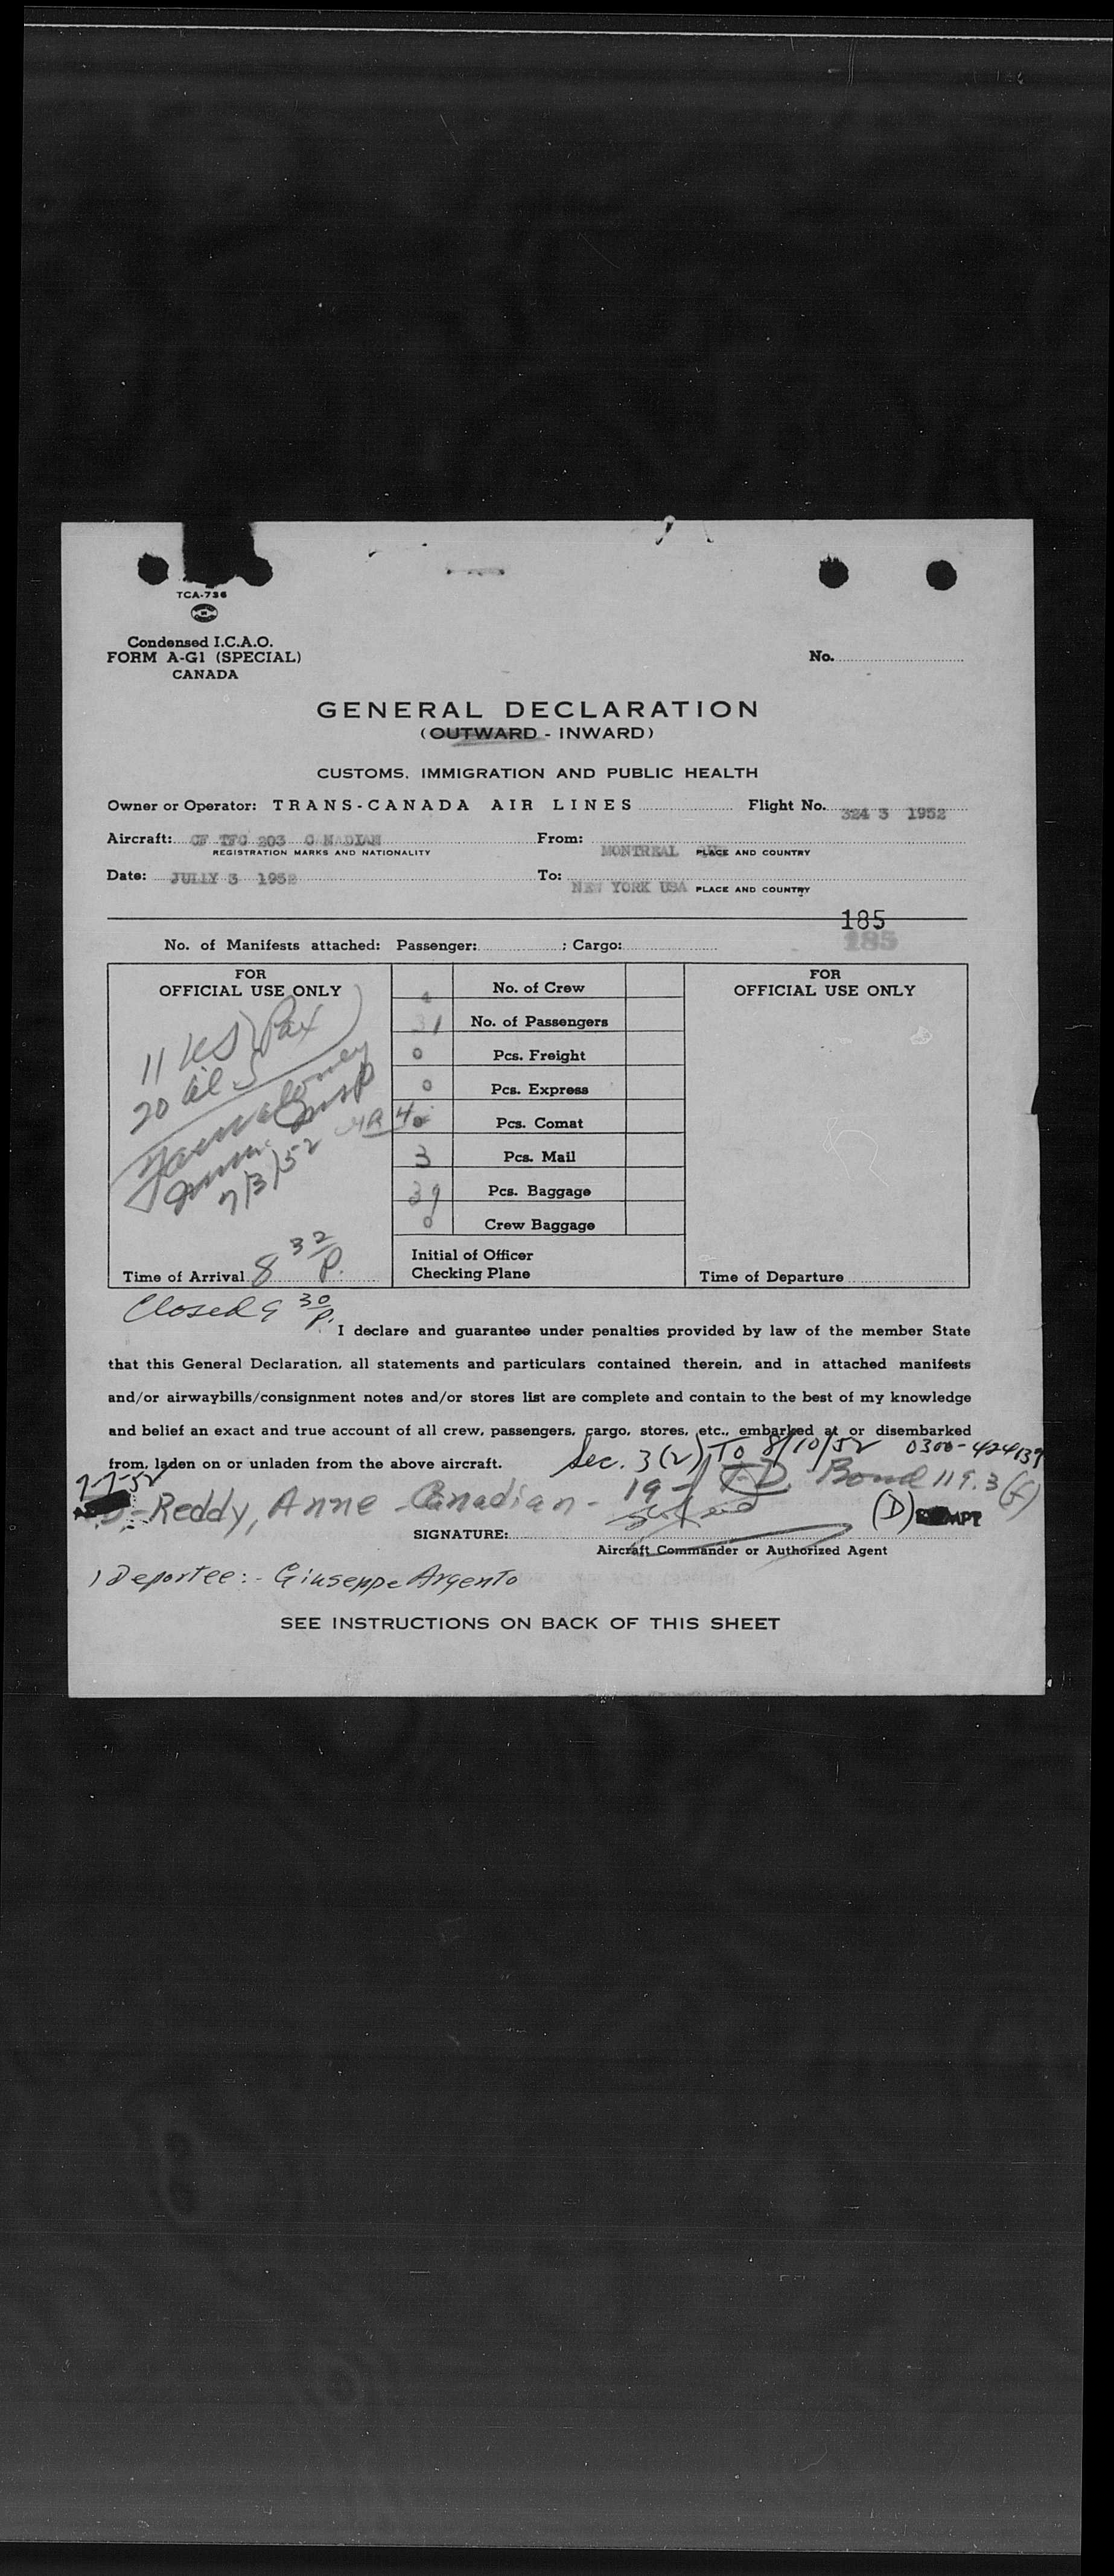 TCA-736
Condensed I.C.A.O.
FORM A-G1 (SPECIAL)
CANADA
No.
GENERAL DECLARATION
(OUTWARD - INWARD)
CUSTOMS, IMMIGRATION AND PUBLIC HEALTH
Owner or Operator: TRANS-CANADA AIR LINES Flight No. 324 3 1952
Aircraft: CF TFC 203 CANADIAN From: MONTREAL
REGISTRATION MARKS AND NATIONALITY PLACE AND COUNTRY
Date: JULLY 3 1952 To: NEW YORK USA PLACE AND COUNTRY
185
185
No. of Manifests attached: Passenger: ; Cargo:
FOR OFFICIAL USE ONLY
11 US } Pax
20 al
Imm. Insp
7/3/52
Time of Arrival 8 32 P.
4 No. of Crew
31 No. of Passengers
0 Pcs. Freight
0 Pcs. Express
Pcs. Comat
3 Pcs. Mail
39 Pcs. Baggage
0 Crew Baggage
Initial of Officer
Checking Plane
FOR OFFICIAL USE ONLY
Time of Departure
Closed 9 30 P.
I declare and guarantee under penalties provided by law of the member State
that this General Declaration, all statements and particulars contained therein, and in attached manifests
and/or airwaybills/consignment notes and/or stores list are complete and contain to the best of my knowledge
and belief an exact and true account of all crew, passengers, cargo, stores, etc., embarked at or disembarked
from, laden on or unladen from the above aircraft.
Sec. 3(2) To 8/10/52 0300-424139
7-7-52
Reddy, Anne - Canadian - 19 - Bond 119.3
(D)
SIGNATURE:
Aircraft Commander or Authorized Agent
1 Deportee:- Giuseppe Argento
SEE INSTRUCTIONS ON BACK OF THIS SHEET